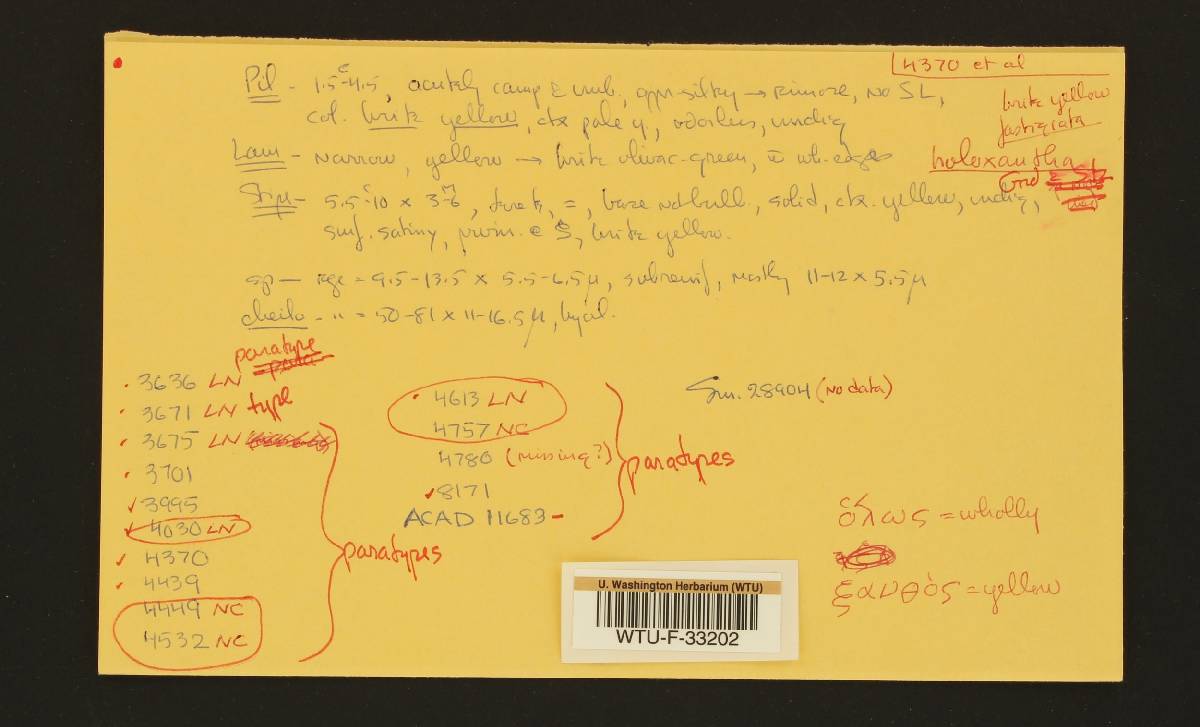 4370 et al
brite yellow
fastigiata
holoxantha
Pil - 1.5-4.5, acutely camp & umb., appr. silky → rimose, no SL,
col. brite yellow, ctx pale y, odorless, undig
Lam - narrow, yellow → brite olivac-green, wh. edges
Stip - 5.5-10 x 3-6, =, base not bull., solid, ctx. yellow, undig,
surf. satiny, pruin. @ brite yellow.
sp - rge = 9.5-13.5 x 5.5-6.5µ, subrenif, mostly 11-12 x 5.5µ
cheilo - " = 50-81 x 11-16.5µ, hyal.
paratype
3636 LN
3671 LN type
3675 LN
3701
3995
4030 LN
4370
4439
4449 NC
4532 NC
paratypes
4613 LN
4757 NC
4780 (missing?)
8171
ACAD 11683 -
paratypes
Sm. 28904 (no data)
ὅλως = wholly
ξανθὸς = yellow
U. Washington Herbarium (WTU)
WTU-F-33202